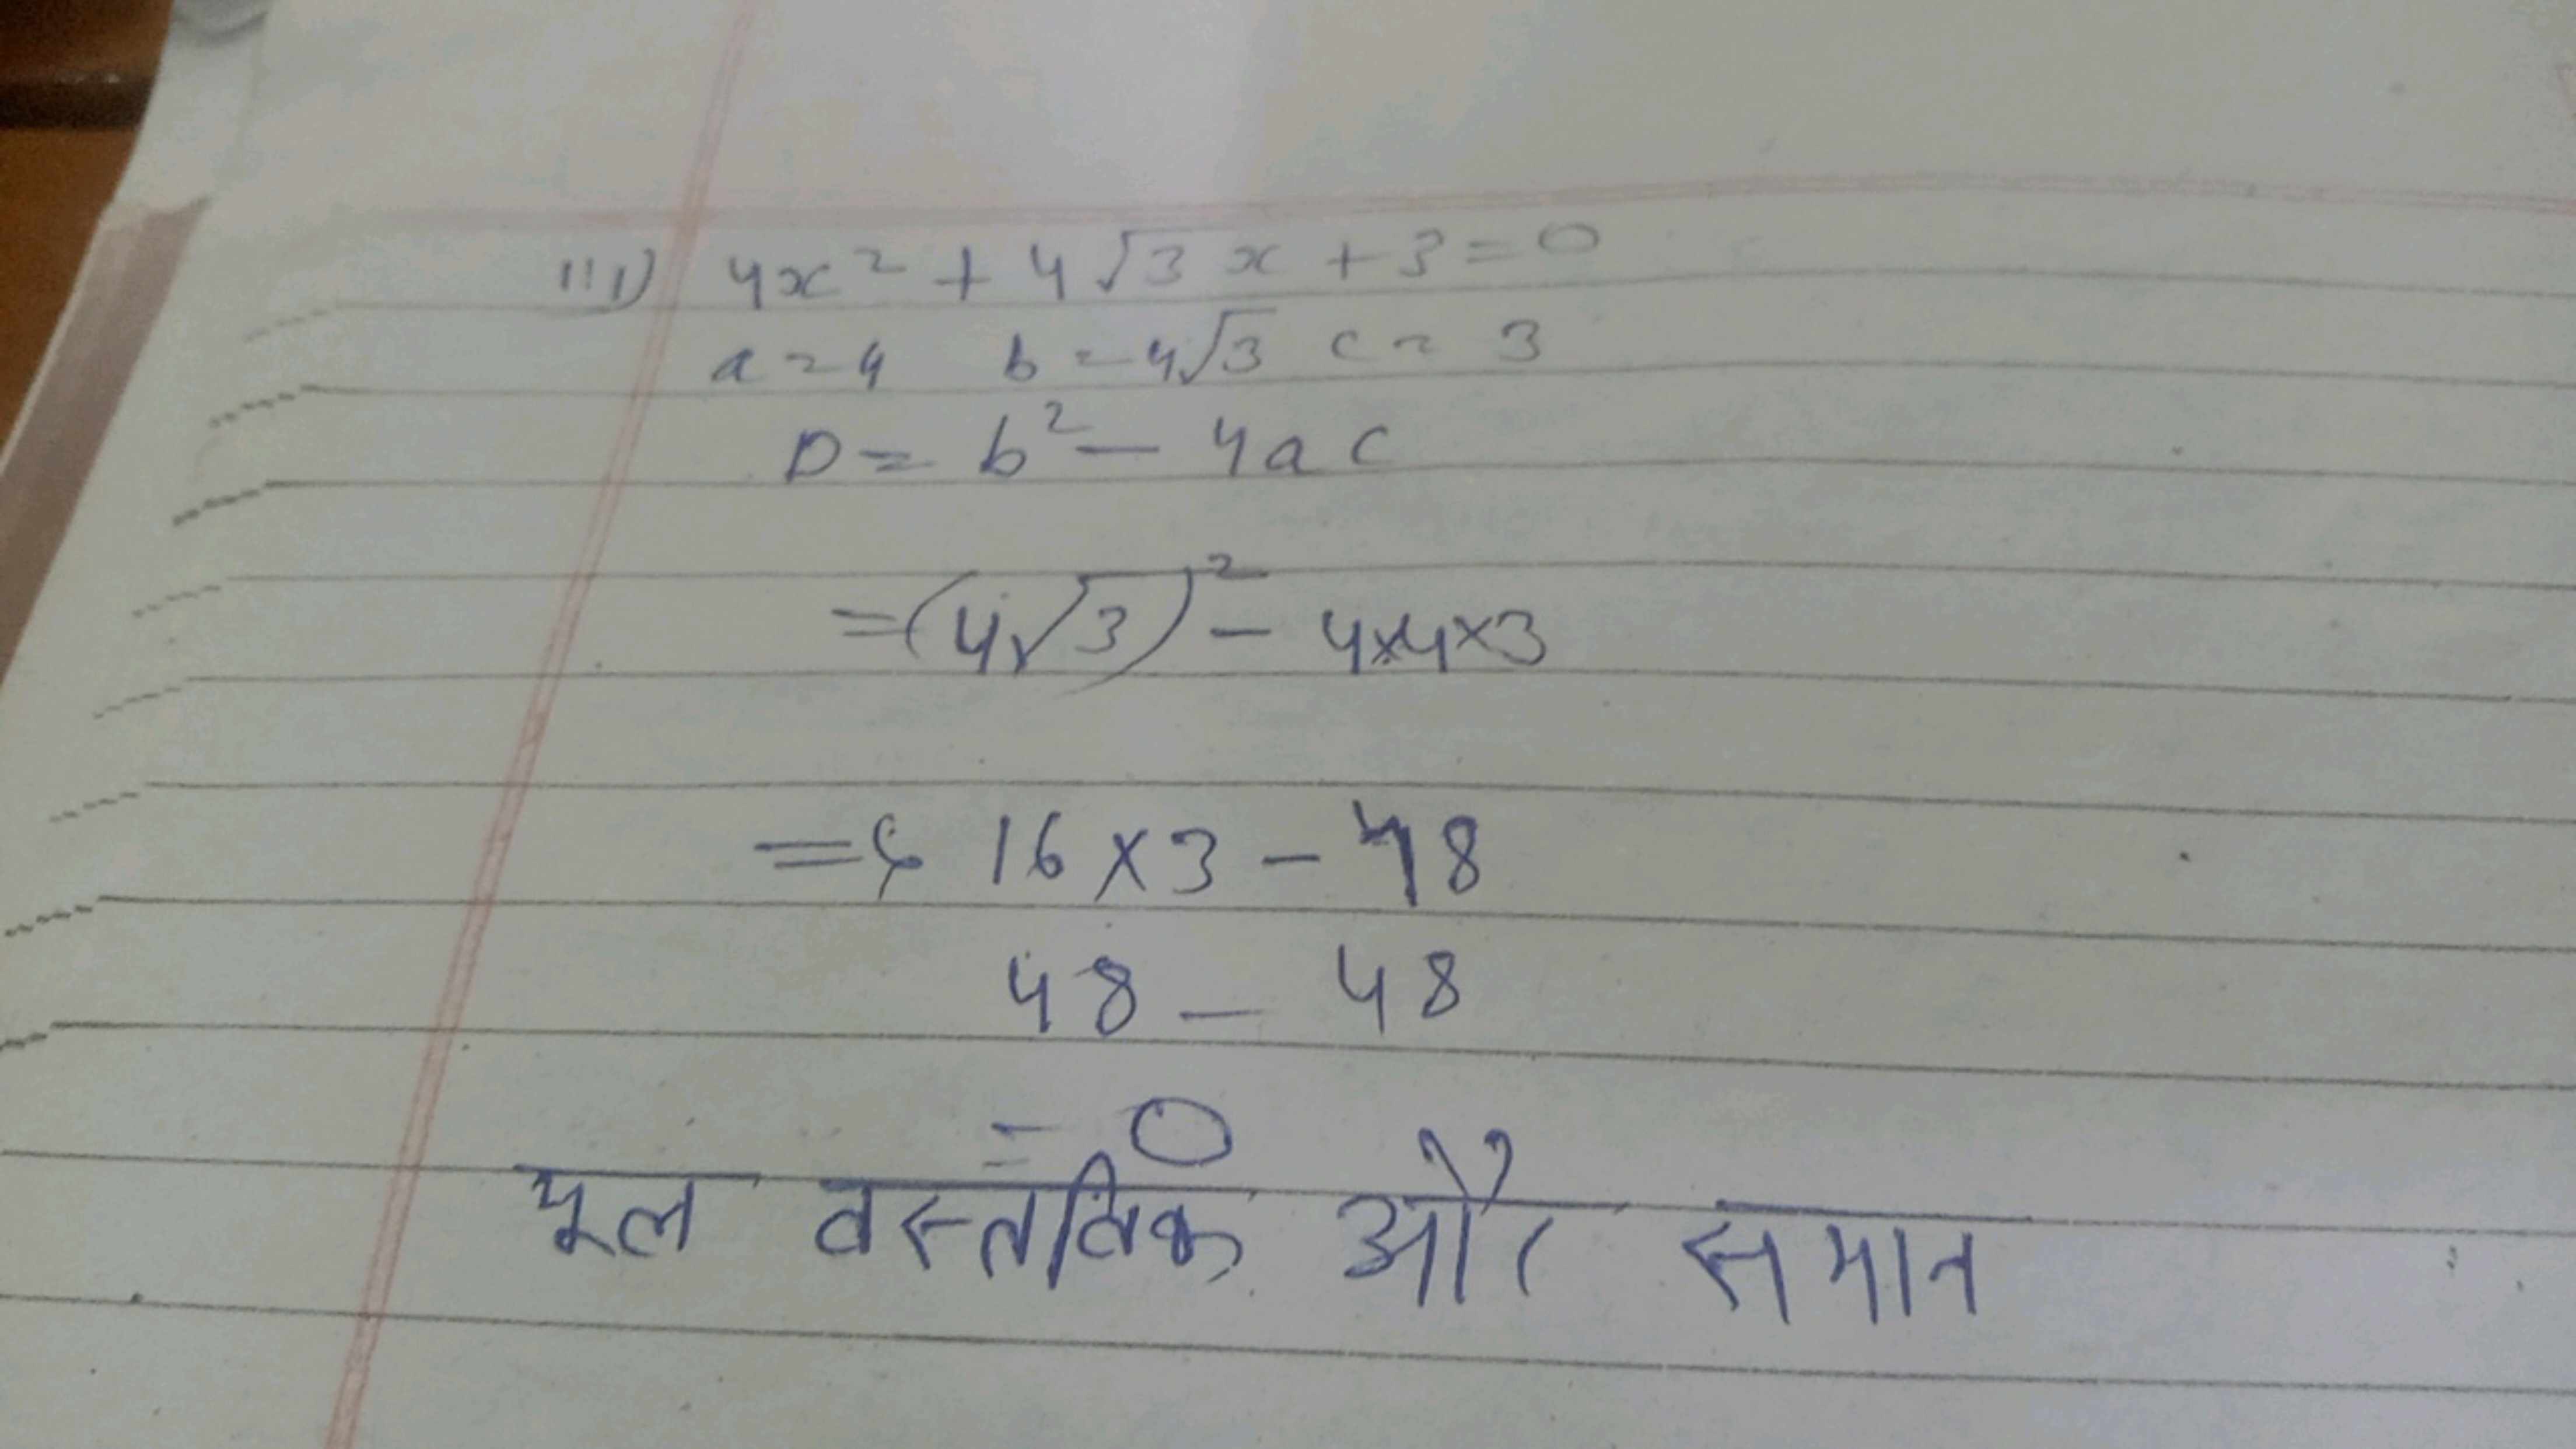 iii) 4x² + 4√3 x + 3 = 0
a = 4 b = 4√3 c = 3
D = b² - 4ac
= (4√3)² - 4×4×3
= 16×3 - 48
48 - 48
= 0
मूल वस्तविक और समान